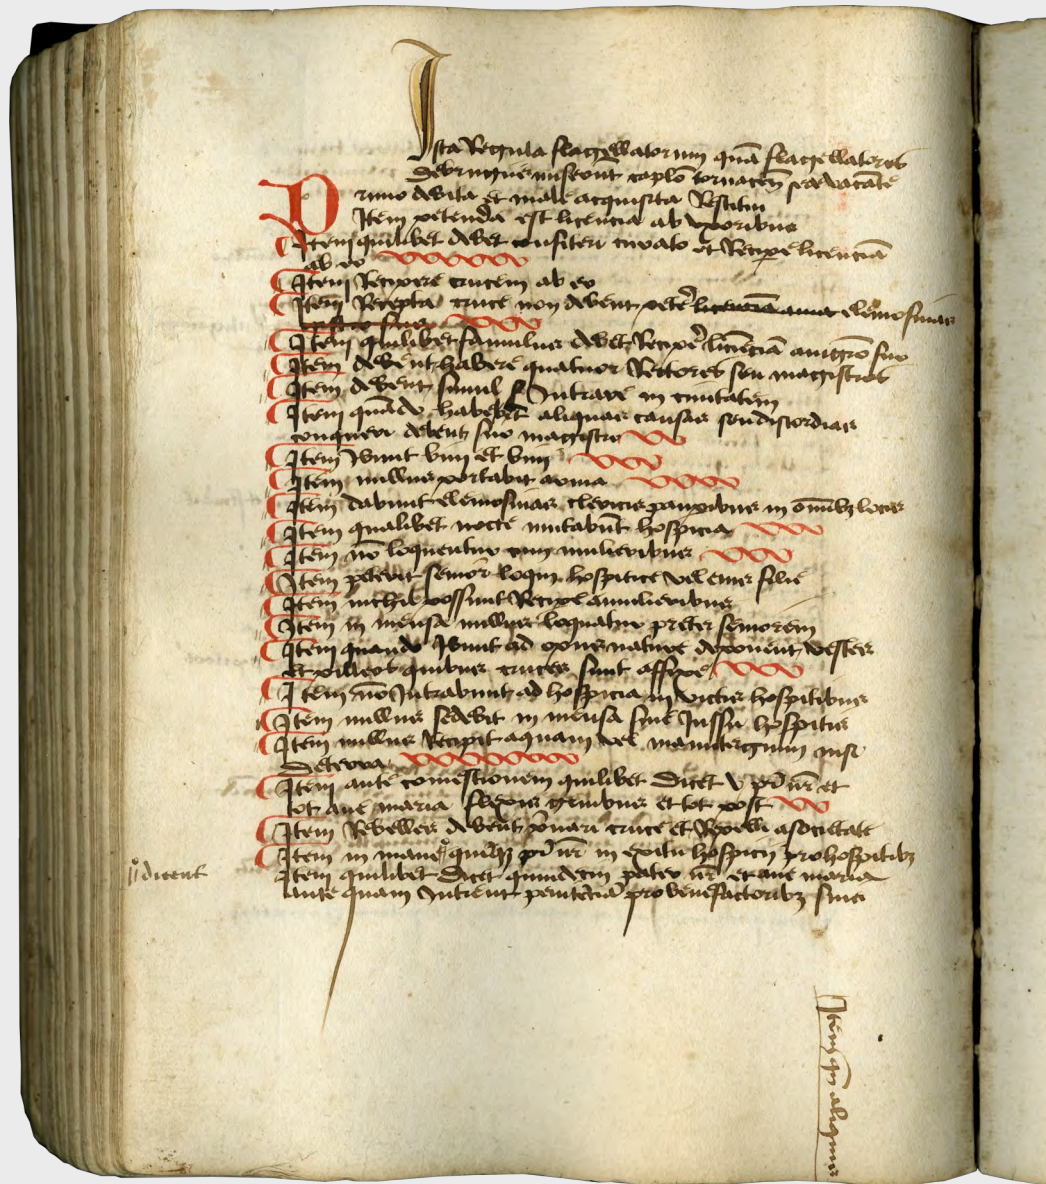 Ista Regula flagellatorum quā flagellatores
Brugis miserunt capło tornaceñ sede vacāte
Primo debita et male acquisita Restitui
Item petenda est licencia ab uxoribus
Item quilibet debet confiteri curato et Recipe licenciā
ab eo
Item Recipere crucem ab eo
Item Recepta cruce non debent petere elemosinas
Item quilibet famulus debet Recipe licenciā a mgrō suo
Item debent habere quatuor Rectores seu magistros
Item debent simul Intrare in civitatem
Item quādo habebūt aliquas causas seu discordias
conqueri debent suo magistro
Item Ibunt bini et bini
Item nullus portabit arma
Item dabunt elemosinas clericis pauperibus in omībꝫ locis
Item qualibet nocte mutabūt hospicia
Item nō loquentur cum mulieribus
Item poterit senior loqui hospitice vel eius filie
Item nichil possunt Recipe a mulieribus
Item in mensa nullus loquatur preter seniorem
Item quando Ibunt ad opus nature deponent vestes
et pilleos quibus cruces sunt affixe
Item nō Intrabunt ad hospicia invictis hospitibus
Item nullus sedebit in mensa sine Jussu hospitis
Item nullus Recipit aquam vel manutergium nisi
de terra
Item ante comestionem quilibet dicet v pr nr et
tot ave maria flexis genibus et tot post
Item Rebelles debent privari cruce et Repelli a societate
Item in mane quīqꝫ pr nr in exitu hospicij pro hospitibꝫ
dicent
Item quilibet dicet quindecim pater nr et ave maria
ante quam Intrent penitēciā pro benefactoribꝫ suis
Item qn̄ aliquis